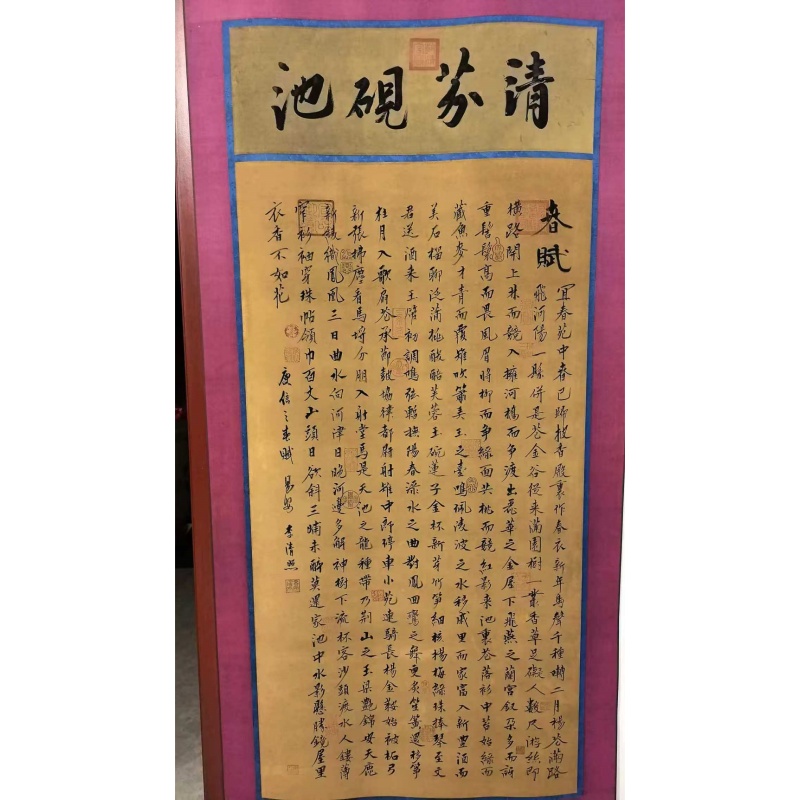 清芬硯池
春賦
宜春苑中春已歸披香殿裏作春衣新年鳥聲千種囀二月楊花滿路
飛河陽一縣併是花金谷從來滿園樹一叢香草足礙人數尺游絲即
橫路開上林而競入擁河橋而爭渡出麗華之金屋下飛燕之蘭宮釵朵多而訝
重髻鬟高而畏風眉將柳而爭綠面共桃而競紅影來池裏花落衫中苔始綠而
藏魚麥才青而覆雉吹簫弄玉之臺鳴珮凌波之水移戚里而家富入新豐酒而
美石榴聊泛蒲桃醱醅芙蓉玉碗蓮子金杯新芽竹筍細核楊梅綠珠捧琴至文
君送酒來玉管初調鳴弦暫撫陽春淥水之曲對鳳回鸞之舞更炙笙簧還移箏
柱月入歌扇花承節鼓協律都尉射雉中郎停車小苑連騎長楊金鞍始被柘弓
新張拂塵看馬埒分明入射堂馬是天池之龍種帶乃荊山之玉梁艷錦安天鹿
新綾織鳳凰三日曲水向河津日晚河邊多解神樹下流杯客沙頭渡水人鏤薄
窄衫袖穿珠帖領巾百丈山頭日欲斜三晡未醉莫還家池中水影懸勝鏡屋裏
衣香不如花
庾信之春賦 易安 李清照